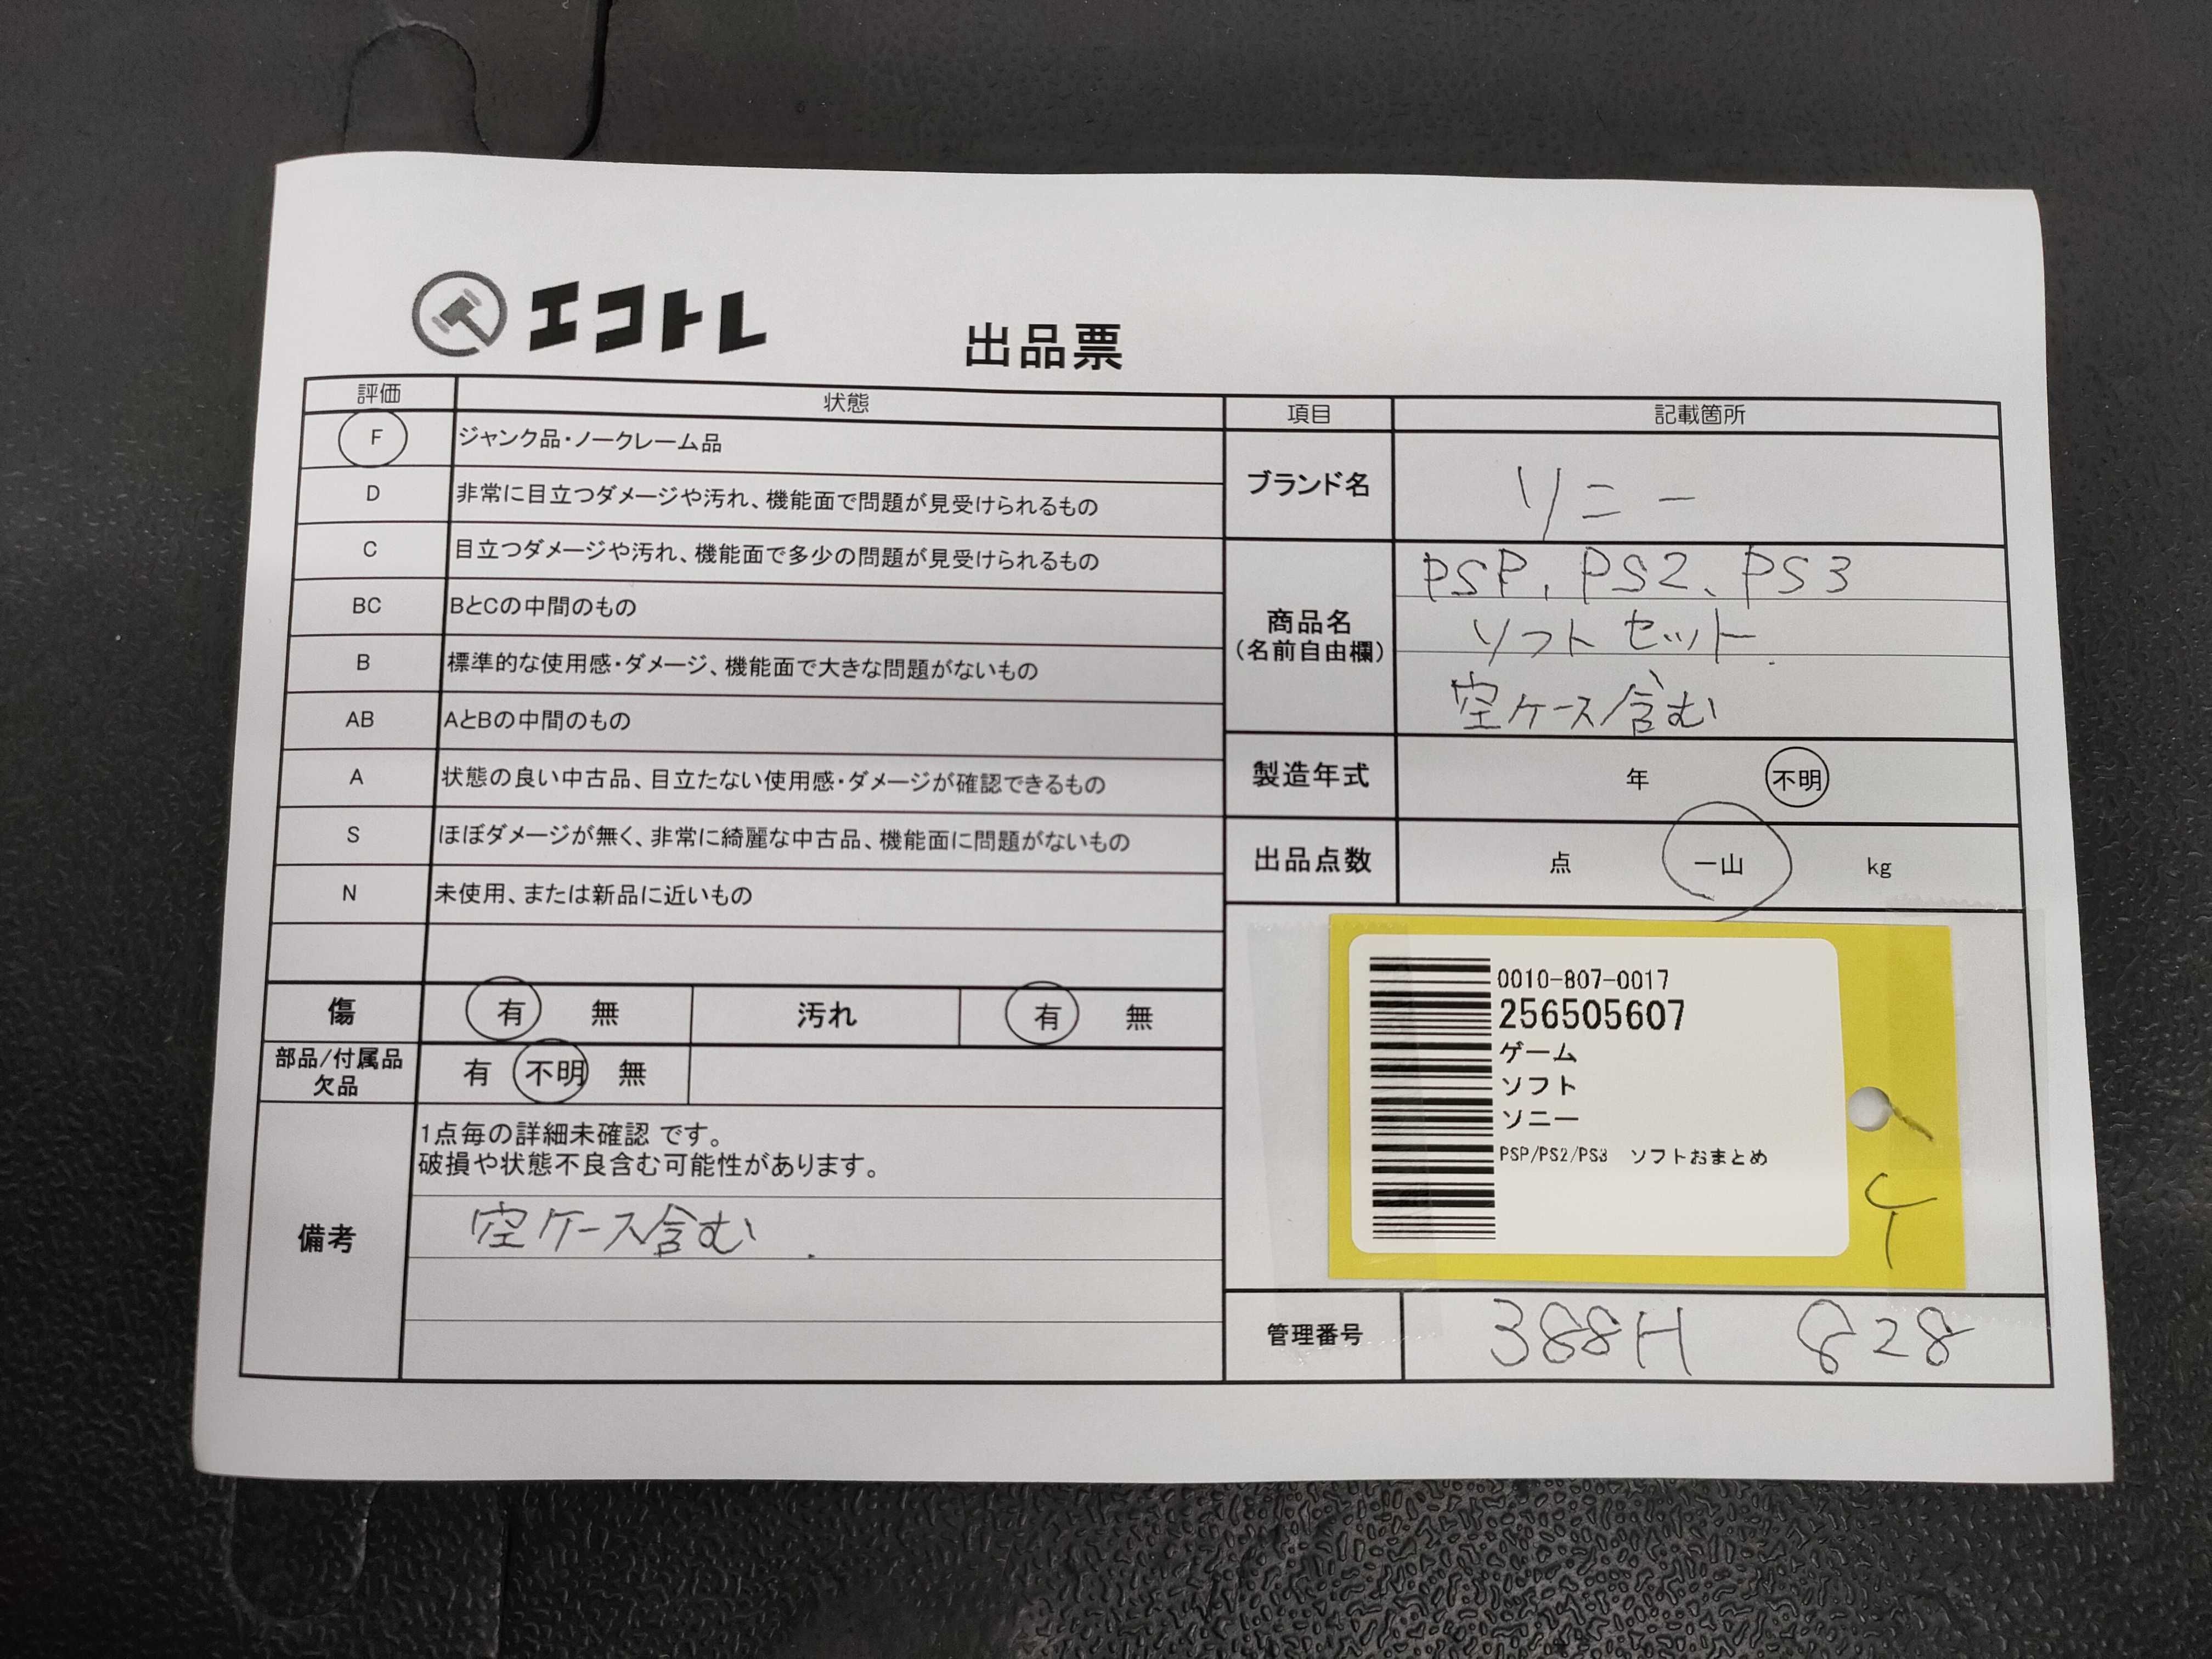 エコトレ
出品票
評価 状態
F ジャンク品・ノークレーム品
D 非常に目立つダメージや汚れ、機能面で問題が見受けられるもの
C 目立つダメージや汚れ、機能面で多少の問題が見受けられるもの
BC BとCの中間のもの
B 標準的な使用感・ダメージ、機能面で大きな問題がないもの
AB AとBの中間のもの
A 状態の良い中古品、目立たない使用感・ダメージが確認できるもの
S ほぼダメージが無く、非常に綺麗な中古品、機能面に問題がないもの
N 未使用、または新品に近いもの
傷 有 無 汚れ 有 無
部品/付属品
欠品
有 不明 無
備考
1点毎の詳細未確認 です。
破損や状態不良含む可能性があります。
空ケース含む
項目 記載箇所
ブランド名 ソニー
商品名
(名前自由欄)
PSP、PS2、PS3
ソフトセット
空ケース含む
製造年式 年 不明
出品点数 点 一山 kg
0010-807-0017
256505607
ゲーム
ソフト
ソニー
PSP/PS2/PS3 ソフトおまとめ
管理番号 388H 828